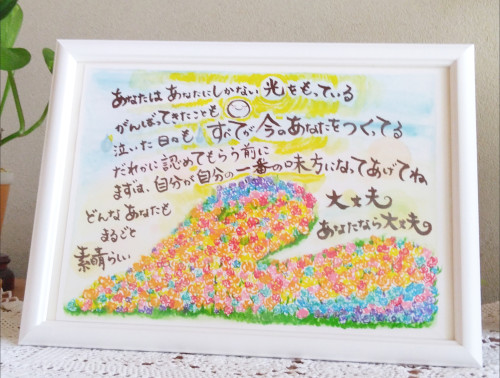 あなたは あなたにしかない 光をもっている
がんばってきたことも
泣いた日々も すべてが今のあなたをつくってる
だれかに 認めてもらう前に
まずは、自分が自分の一番の味方になってあげてね
どんなあなたも
まるごと
素晴らしい
大丈夫
あなたなら大丈夫